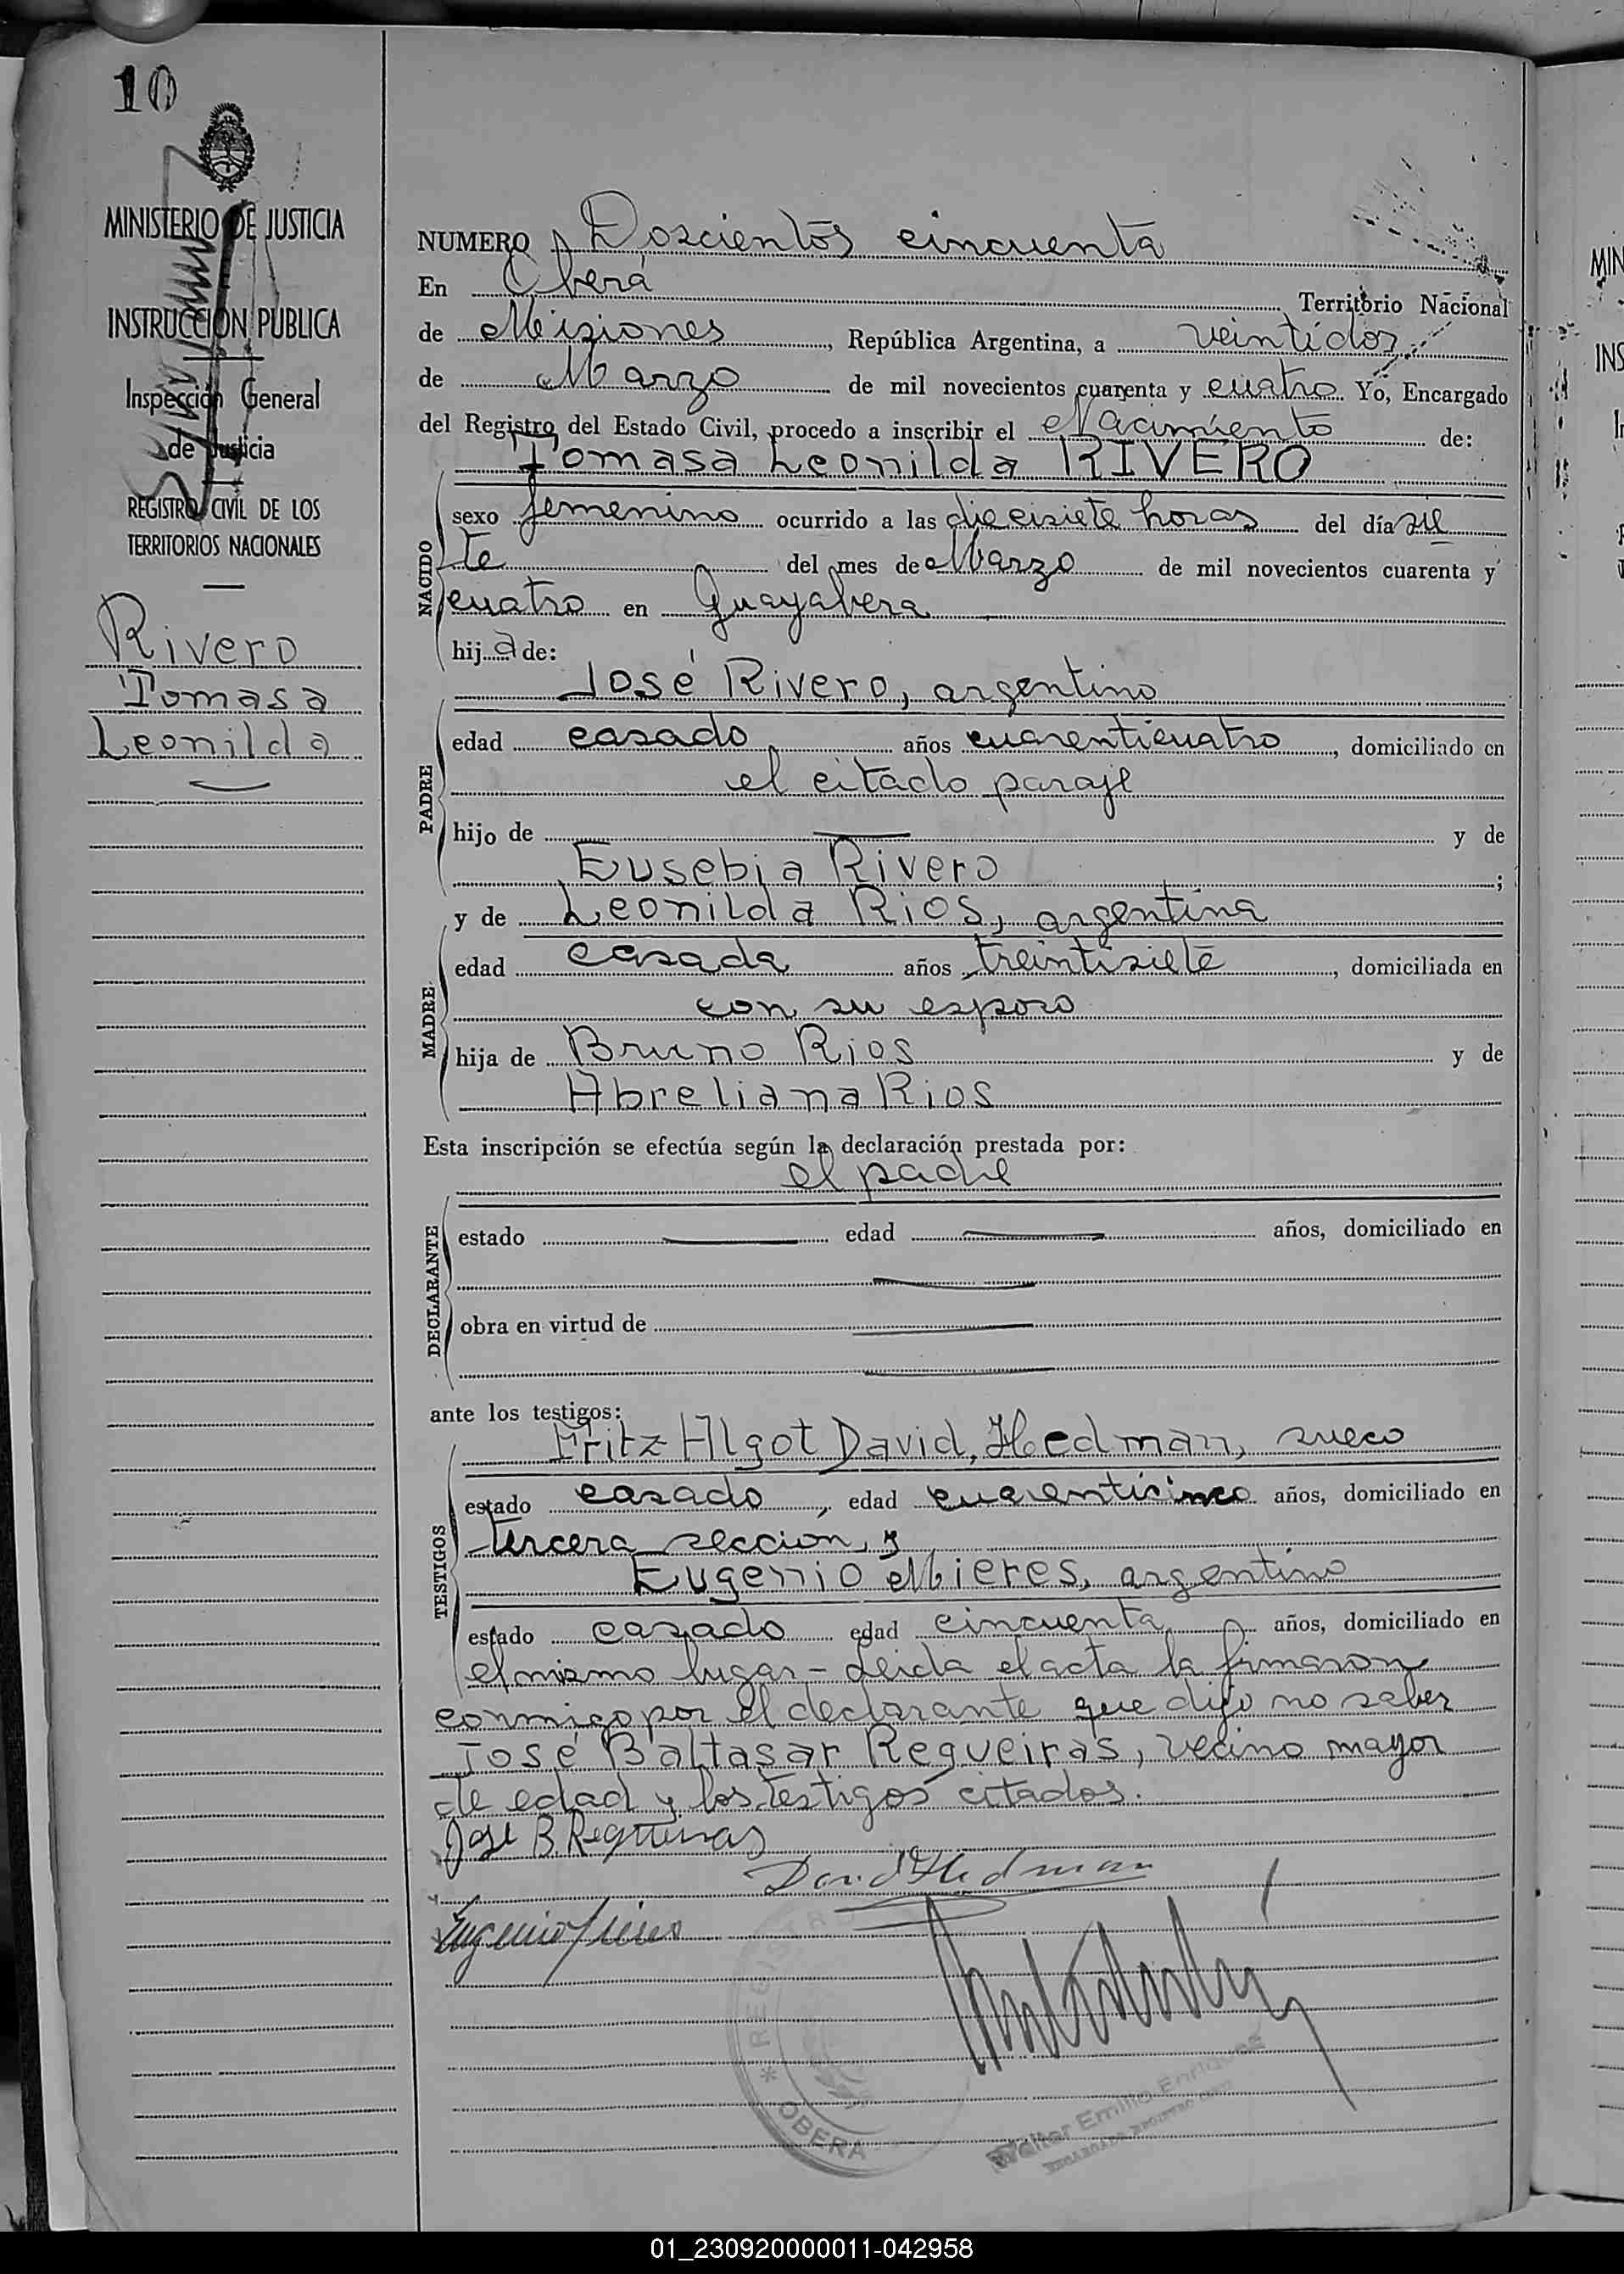 10
MINISTERIO DE JUSTICIA
INSTRUCCION PUBLICA
Inspección General
de Justicia
REGISTRO CIVIL DE LOS
TERRITORIOS NACIONALES
Rivero
Tomasa
Leonilda
NUMERO Doscientos cincuenta
En Oberá Territorio Nacional
de Misiones, República Argentina, a veintidos
de Marzo de mil novecientos cuarenta y cuatro Yo, Encargado
del Registro del Estado Civil, procedo a inscribir el Nacimiento de:
Tomasa Leonilda RIVERO
NACIDO
sexo femenino ocurrido a las diecisiete horas del día sie
te del mes de Marzo de mil novecientos cuarenta y
cuatro en Guayabera
hija de:
José Rivero, argentino
PADRE
edad casado años cuarenticuatro, domiciliado en
el citado paraje
hijo de y de
Eusebia Rivero ;
y de Leonilda Rios, argentina
MADRE
edad casada años treintisiete, domiciliada en
con su esposo
hija de Bruno Rios y de
Abreliana Rios
Esta inscripción se efectúa según la declaración prestada por:
el padre
DECLARANTE
estado edad años, domiciliado en
obra en virtud de
ante los testigos:
Fritz Algot David, Hedman, sueco
TESTIGOS
estado casado, edad cuarenticinco años, domiciliado en
tercera seccion, y
Eugenio Mieres, argentino
estado casado edad cincuenta años, domiciliado en
el mismo lugar - Leida el acta la firmaron
conmigo por el declarante que dijo no saber
José Baltasar Regueiras, vecino mayor
de edad y los testigos citados.
José B. Regueiras
David Hedman
Eugenio Mieres
* REGISTRO
OBERA
Walter Emilio Enriquez
01_230920000011-042958